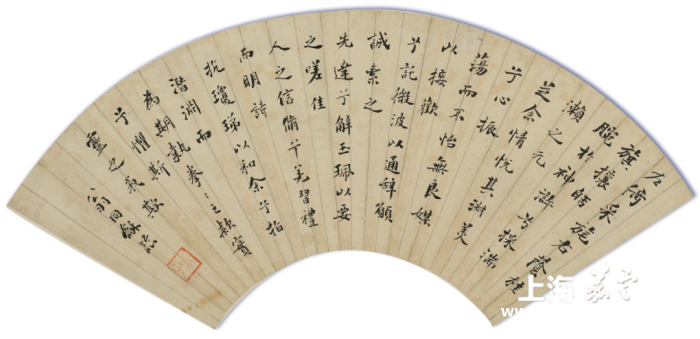 左倚采旄右蔭桂
旗攘皓
腕於神滸兮採湍
瀨之元
芝余情悅其淑美
兮心振
蕩而不怡無良媒
以接歡
兮託微波以通辭願
誠素之
先達兮解玉珮以要
之嗟佳
人之信脩兮羌習禮
而明詩
抗瓊珶以和余兮指
潛淵而
為期執拳〻之款實
兮懼斯
靈之我欺
翁同龢
上海
www.